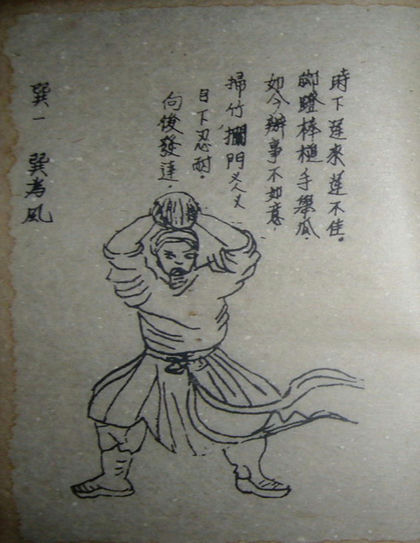 時下運來運不佳。
腳蹬棒槌手舉瓜。
如今辦事不如意。
掃竹攔門叉叉
目下忍耐。
向後發達。
巽一 巽為風